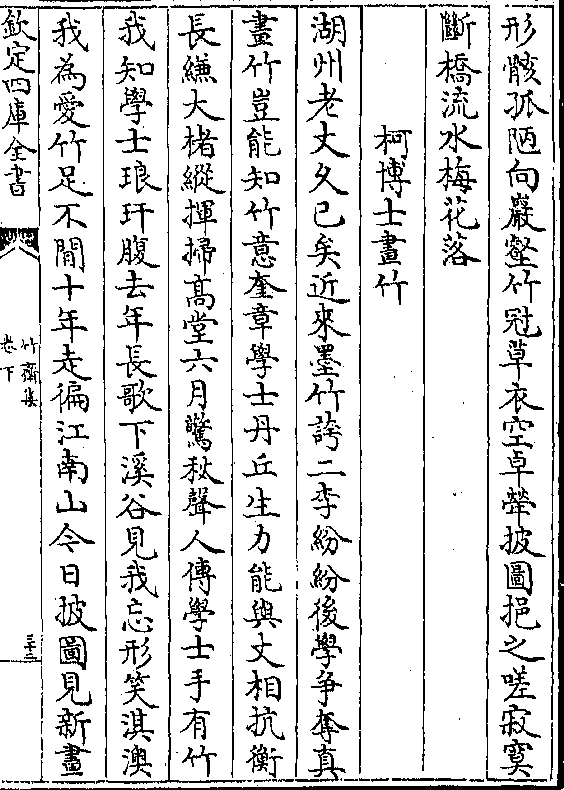 形骸孤陋向巖壑竹冠草衣空卓犖披圖挹之嗟寂寞
斷橋流水梅花落
柯博士畫竹
湖州老文久已矣近來墨竹誇二李紛紛後學爭奪真
畫竹豈能知竹意奎章學士丹丘生力能與文相抗衡
長縑大楮縱揮掃髙堂六月驚秋聲人傳學士手有竹
我知學士琅玕腹去年長歌下溪谷見我忘形笑淇澳
我為愛竹足不閒十年走徧江南山今日披圖見新畫
欽定四庫全書
竹齋集
卷下
三十三